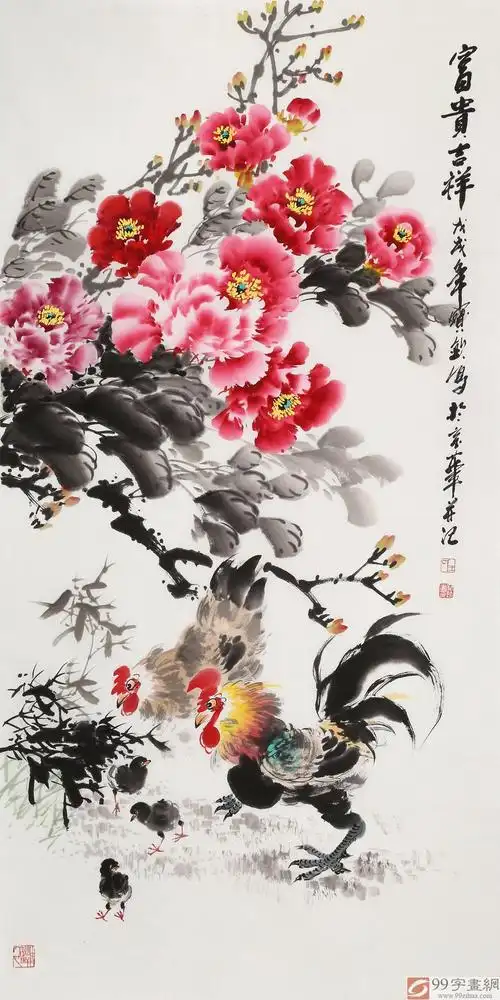 富貴吉祥
戊戌年寶鎖寫於京華並記
99字畫網
www.99zihua.com